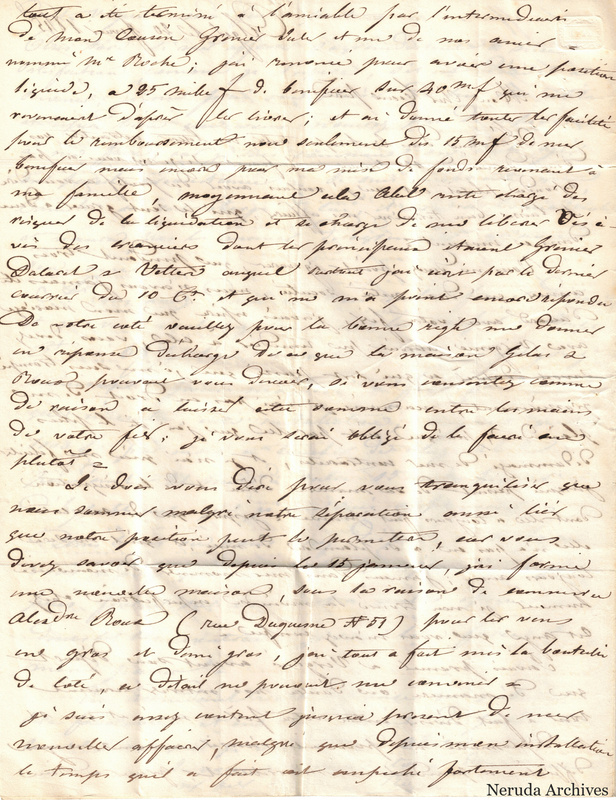 tout a été terminé à l'amiable par l'intermediaire
de mon Cousin Grenier Jules et un de nos amis
nommé Mr Roche; j'ai renoncé pour avoir une position
liquide, a 25 mille f de benefices sur 40 mf qui me
revenaient d'après les livres; et ai donné toutes les facilités
pour le remboursement non seulement des 15 mf de mes
benefices mais encore pour ma mise de fonds revenant à
ma famille, moyennant cela reste chargé des
risques de la liquidation et se charge de me liberer Vis à
vis des dont les principaux etaient Grenier
Dalaret & Vetter auquel surtout j'ai écrit par le dernier
courrier du 10 Ct et qui ne m'a point encore repondu
De votre coté veuillez pour la bonne règle me donner
en reponse décharge de ce que la maison Gelas &
Roux pouvait vous devoir, si vous consentez comme
de raison a laisser cette somme entre les mains
de votre fils; je vous serai obligé de le faire au
plutôt =
Je dois vous dire pour vous tranquiliser que
nous sommes malgré notre séparation aussi liés
que notre position peut le permettre, car vous
devez savoir que depuis le 15 janvier, j'ai formé
une nouvelle maison, sous la raison de commerce
Alexdre Roux (rue Duquesne N 51) pour les vins
en gros et demi gros, j'ai tout a fait mis la bouteille
de coté, ce détail ne pouvant me convenir =
je suis assez content jusqu'a present de mes
nouvelles affaires, malgré que depuis mon installation
le temps qu'il a fait ait empeché fortement
Neruda Archives